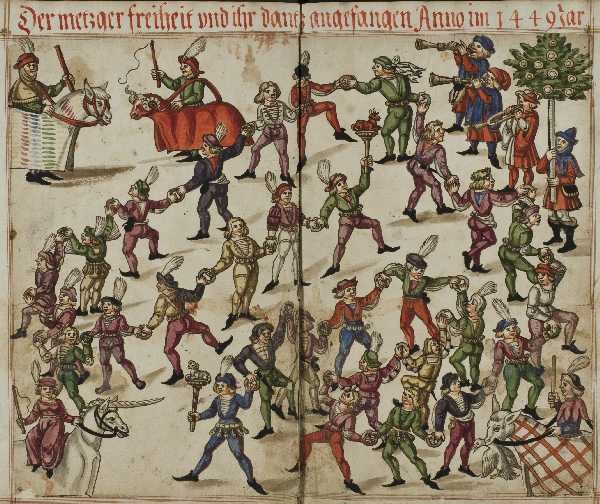 Der metzger freiheit vnd ihr dantz angefangen Anno im 1449 Jar